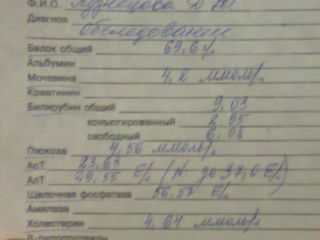 Ф.И.О. Кузнецова
Диагноз
обследование
Белок общий 69,6 г/л
Альбумин
Мочевина 4,2 ммоль/л
Креатинин
Билирубин общий 9,03
конъюгированный 2,95
свободный 6,08
Глюкоза 4,56 ммоль/л
АсТ 23,63
АлТ 29,55 Е/л (N до 37,0 Е/л)
Щелочная фосфатаза 56,57 Е/л
Амилаза
Холестерин 4,64 ммоль/л